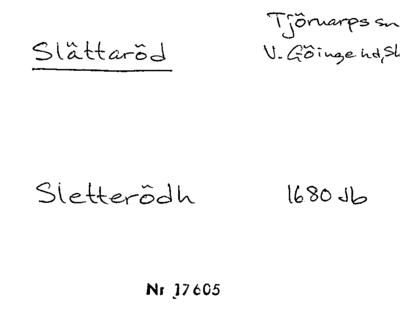 Slättaröd
Tjörnarps sn
V. Göinge hd, Sk
Sletterödh
1680 Jb
Nr 17605